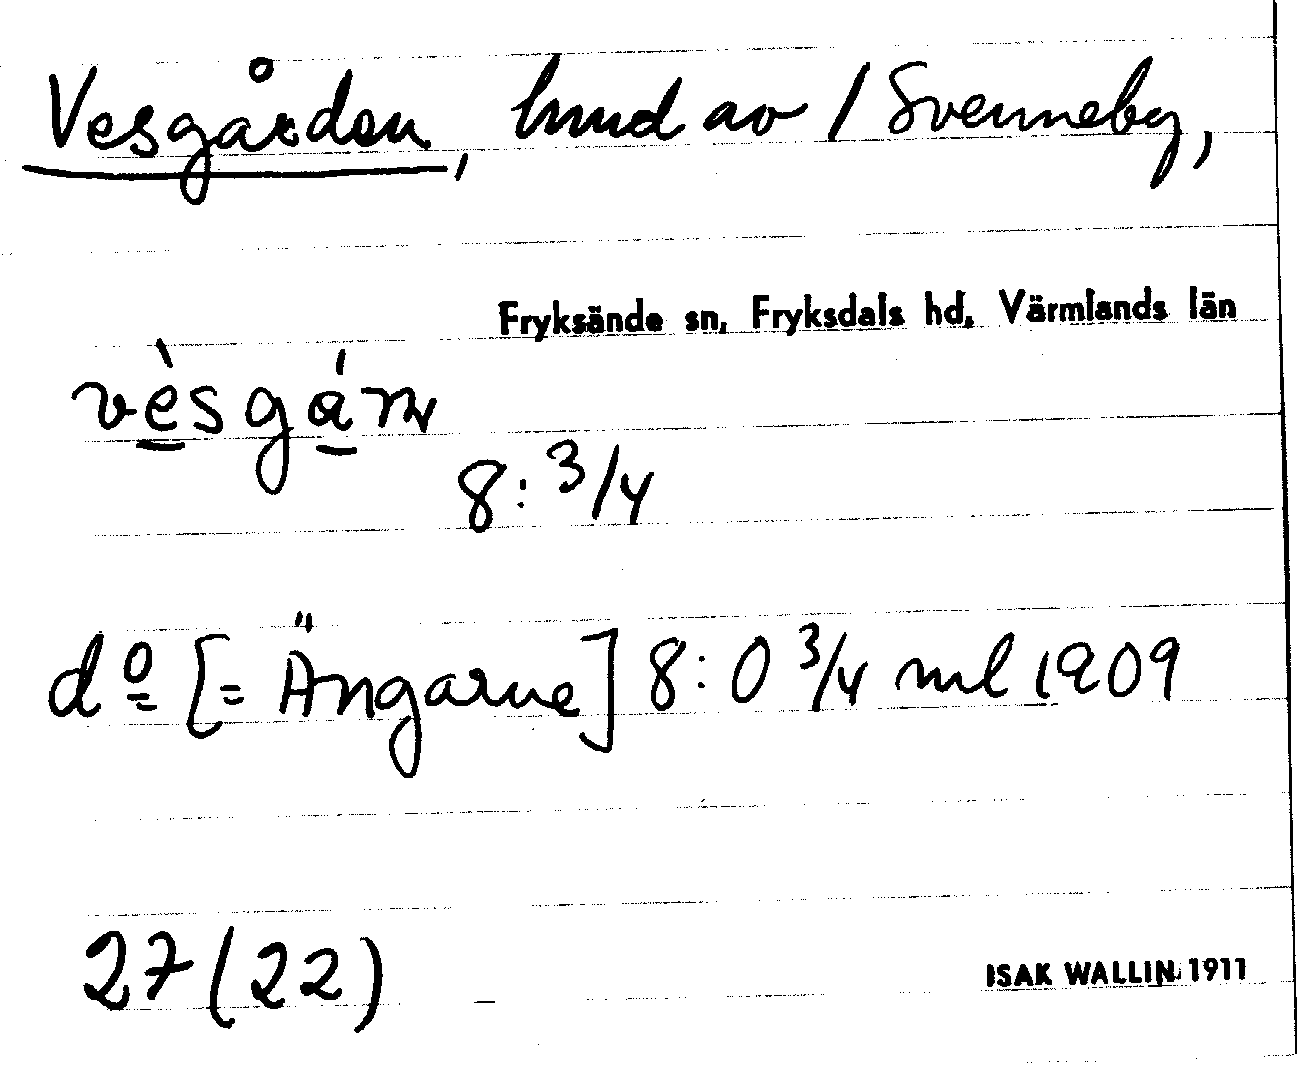 Vesgården, hmd av / Svenneby,
Fryksände sn, Fryksdals hd, Värmlands län
vèsgán
8: 3/4
do [= Ängarne] 8:0 3/4 ml 1909
27 (22)
ISAK WALLIN 1911